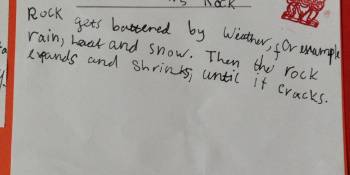 Rock
Rock gets battered by Weather, for example
rain, heat and snow. Then the rock
expands and shrinks, until it cracks.